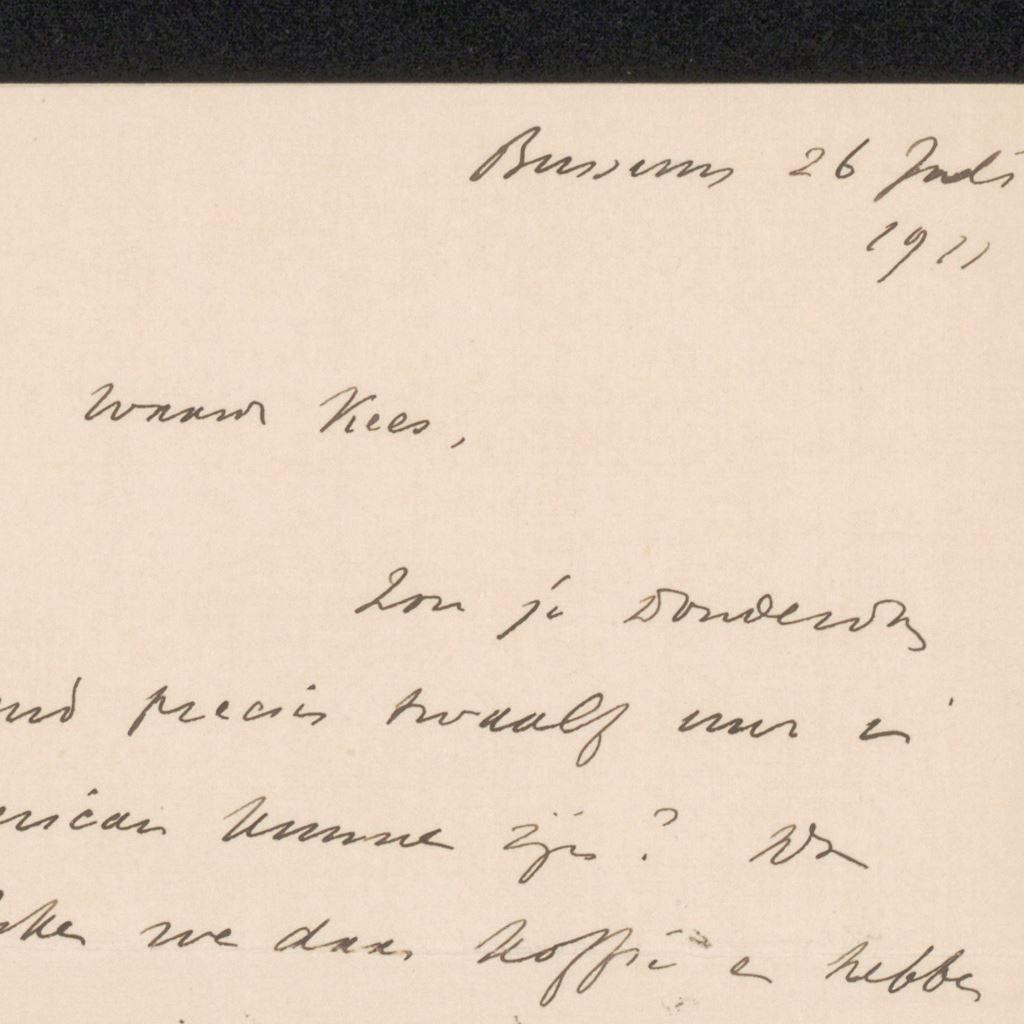 Bussum 26 Juli
1911
Waarde Kees,
Zou je Donderdag
precies twaalf uur in
kunnen zijn? We
we daar koffie en hebben